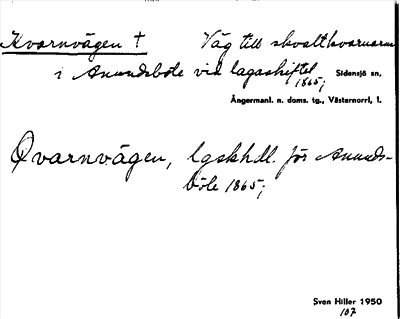 Kvarnvägen † Väg till skvaltkvarnarna
i Anundsböle vid lagaskiftet
1865; Sidensjö sn,
Ångermanl. n. doms. tg., Västernorrl, l.
Qvarnvägen, lgskhdl. för Anunds-
böle 1865;
Sven Hiller 1950
107